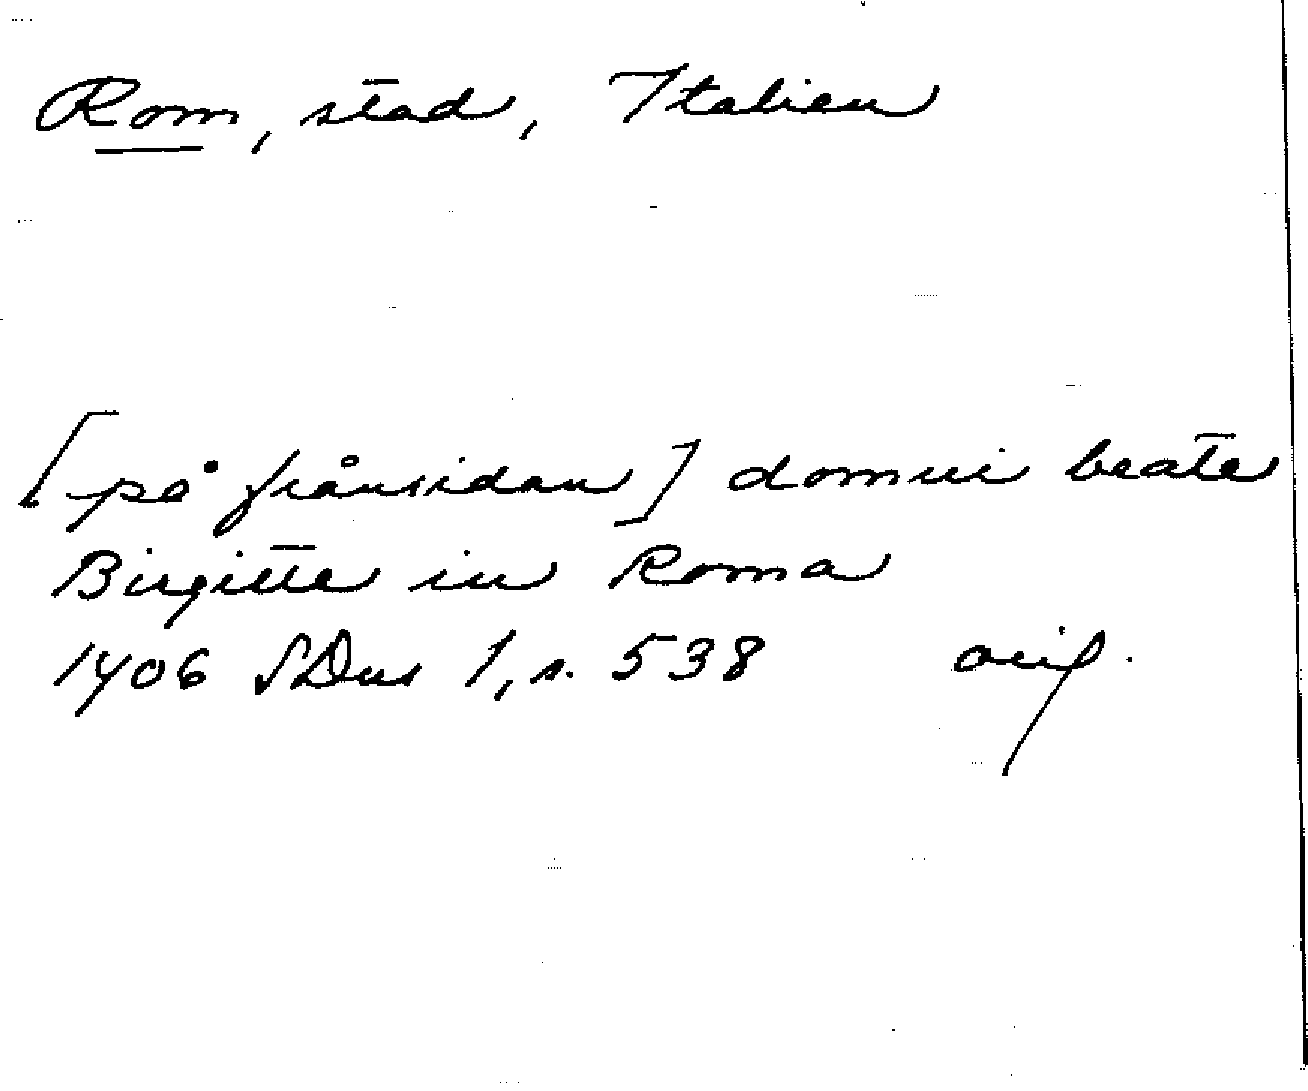 Rom, stad, Italien
[på frånsidan] domui beate
Birgitte in Roma
1406 SDns 1, s. 538 orig.